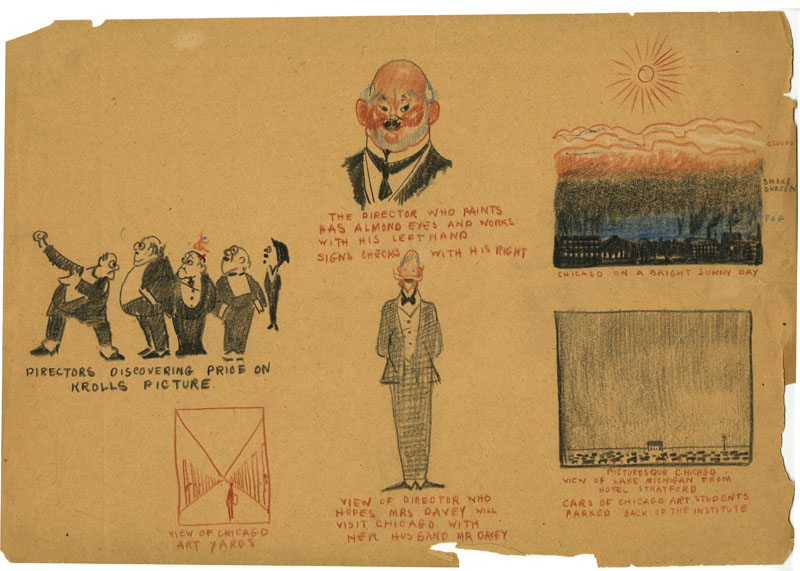 THE DIRECTOR WHO PAINTS
HAS ALMOND EYES AND WORKS
WITH HIS LEFT HAND
SIGNS CHECKS WITH HIS RIGHT
CLOUDS
SMOKE
SCREEN
FOG
CHICAGO ON A BRIGHT SUNNY DAY
DIRECTORS DISCOVERING PRICE ON
KROLLS PICTURE.
VIEW OF CHICAGO
ART YARDS
VIEW OF DIRECTOR WHO
HOPES MRS DAVEY WILL
VISIT CHICAGO WITH
HER HUSBAND MR DAVEY
PICTURESQUE CHICAGO
VIEW OF LAKE MICHIGAN FROM
HOTEL STRATFORD
CARS OF CHICAGO ART STUDENTS
PARKED BACK OF THE INSTITUTE